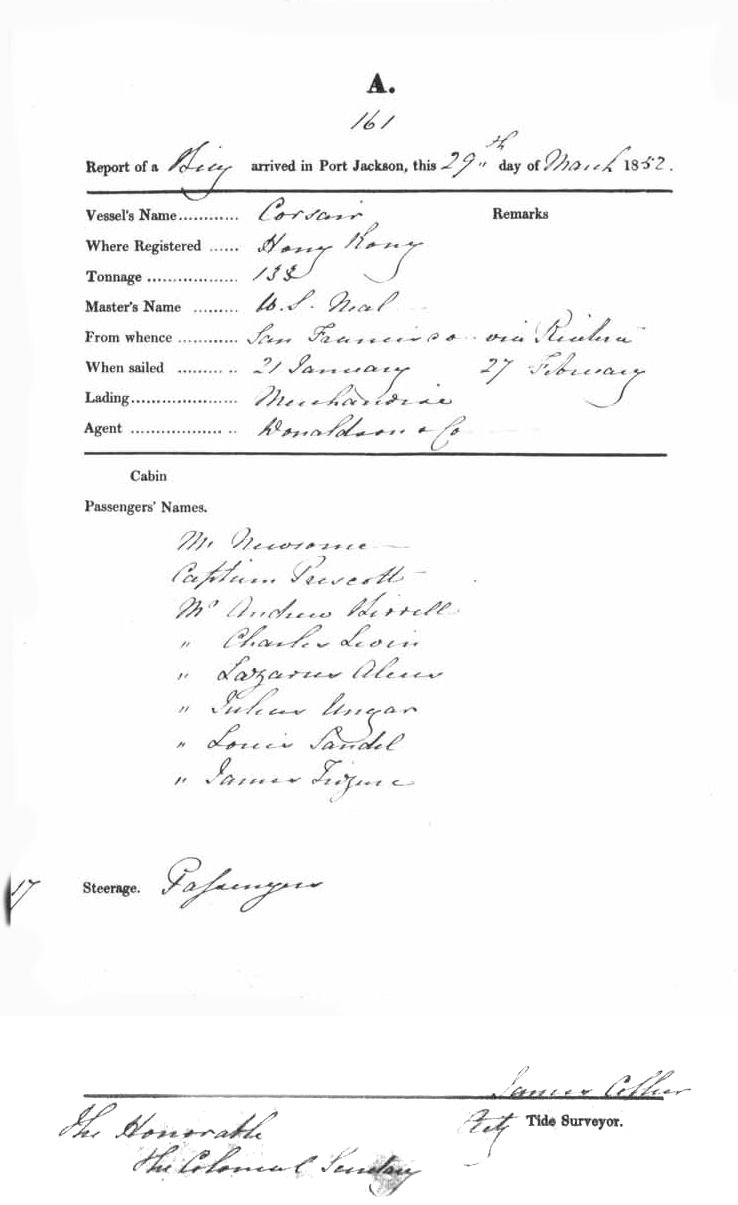 A.
161
Report of a Brig arrived in Port Jackson, this 29th day of March 1852.
Vessel's Name............ Corsair Remarks
Where Registered ...... Hong Kong
Tonnage .................. 133
Master's Name ......... W. S. Neal
From whence ............ San Francisco via
When sailed ......... .. 21 January 27 February
Lading..................... Merchandise
Agent .................. .. Donaldson & Co
Cabin
Passengers' Names.
Mr Newsome
Captain Prescott
Mr Andrew Birrell
" Charles Levin
" Lazarus
" Julius Ungar
" Louis Sandel
" James
17 Steerage. Passengers
James Collier
Actg Tide Surveyor.
The Honorable
The Colonial Secretary